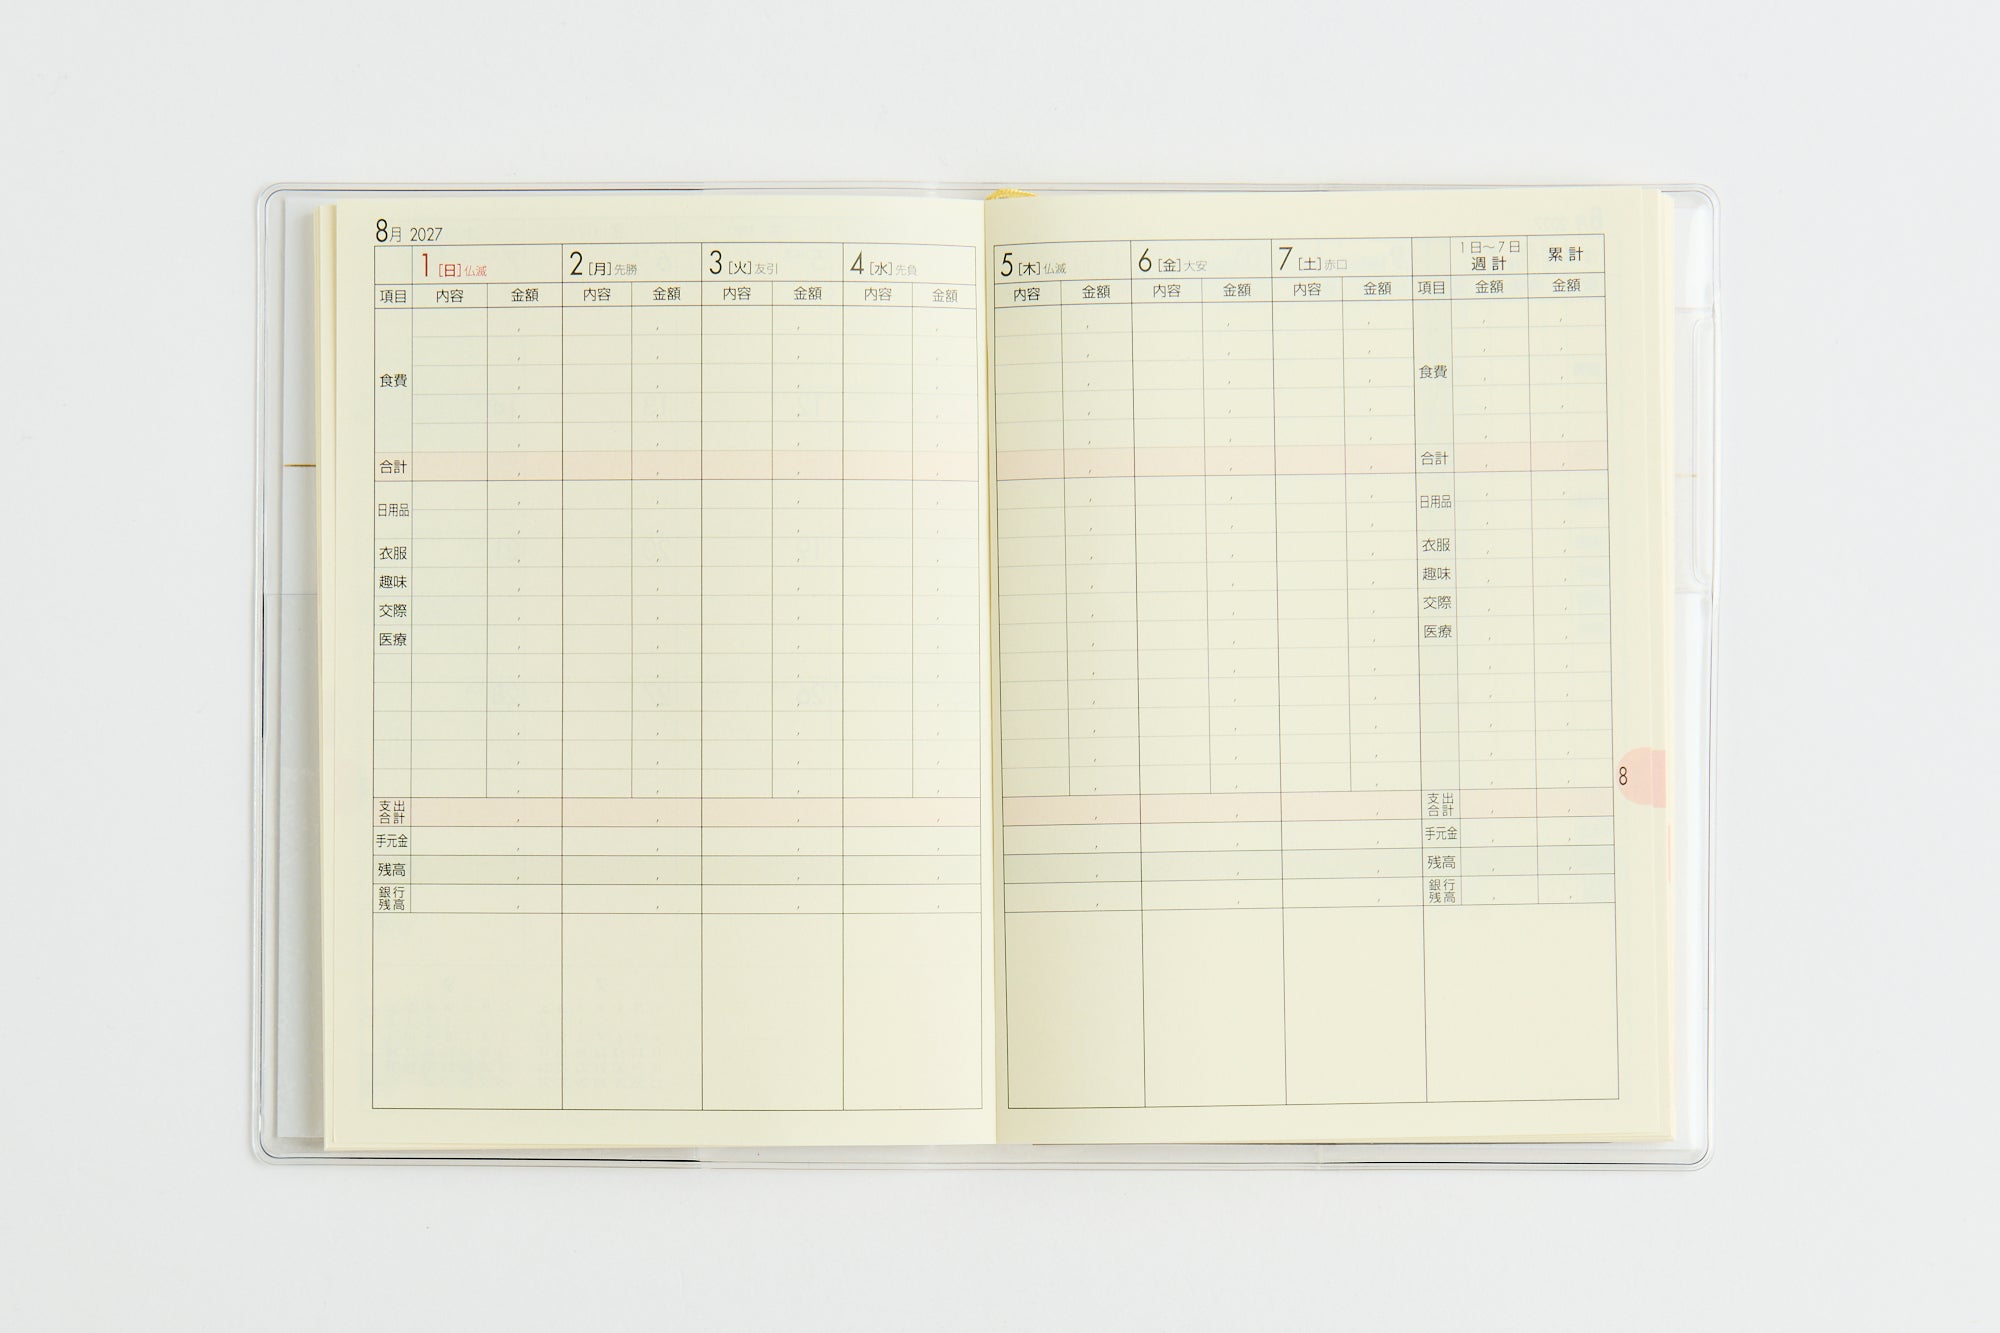 8月 2027
1 [日] 仏滅
2 [月] 先勝
3 [火] 友引
4 [水] 先負
項目 内容 金額 内容 金額 内容 金額 内容 金額
食費
合計
日用品
衣服
趣味
交際
医療
支出
合計
手元金
残高
銀行
残高
5 [木] 仏滅
6 [金] 大安
7 [土] 赤口
1日～7日
週計
累計
内容 金額 内容 金額 内容 金額 項目 金額 金額
食費
合計
日用品
衣服
趣味
交際
医療
支出
合計
手元金
残高
銀行
残高
8